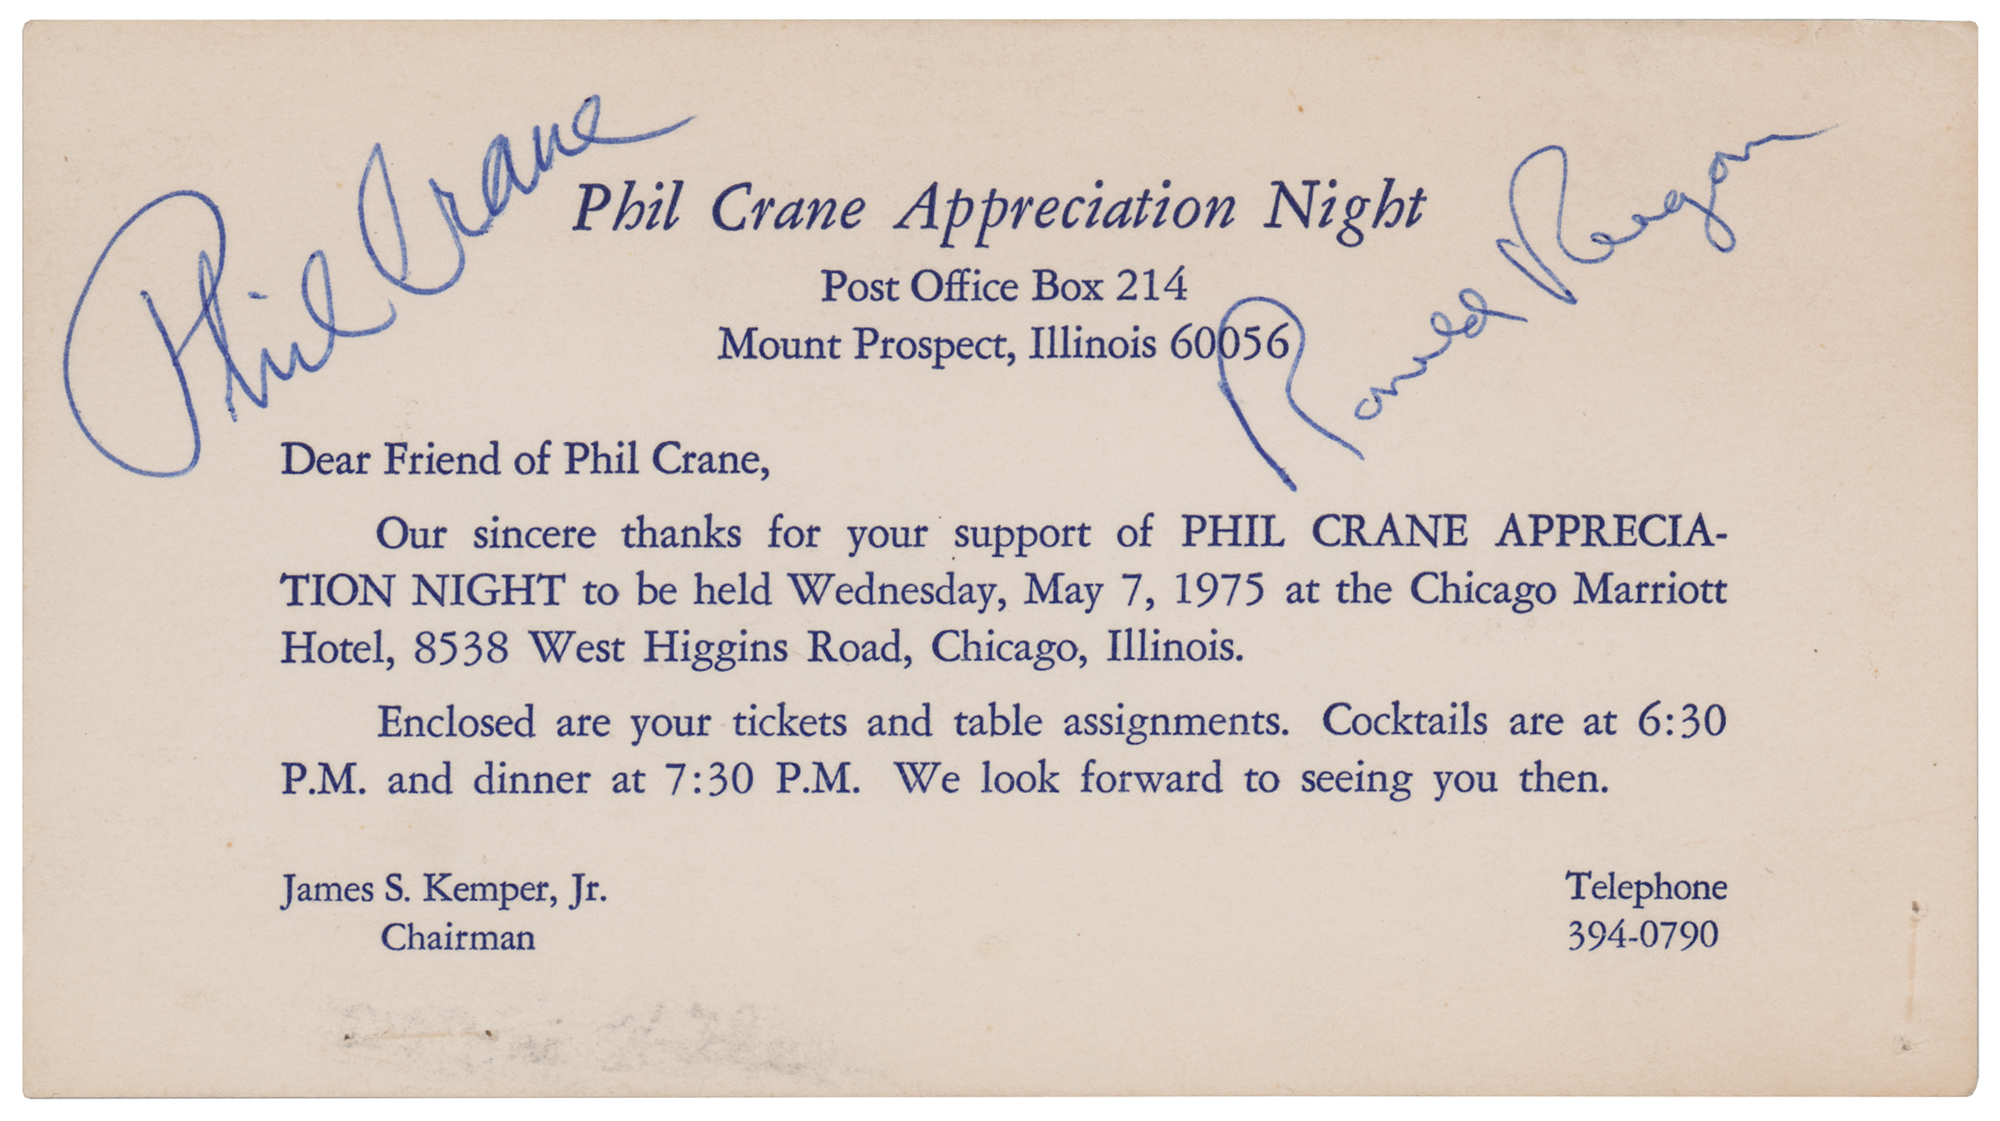 Phil Crane
Ronald Reagan
Phil Crane Appreciation Night
Post Office Box 214
Mount Prospect, Illinois 60056
Dear Friend of Phil Crane,
Our sincere thanks for your support of PHIL CRANE APPRECIA-
TION NIGHT to be held Wednesday, May 7, 1975 at the Chicago Marriott
Hotel, 8538 West Higgins Road, Chicago, Illinois.
Enclosed are your tickets and table assignments. Cocktails are at 6:30
P.M. and dinner at 7:30 P.M. We look forward to seeing you then.
James S. Kemper, Jr.
Chairman
Telephone
394-0790